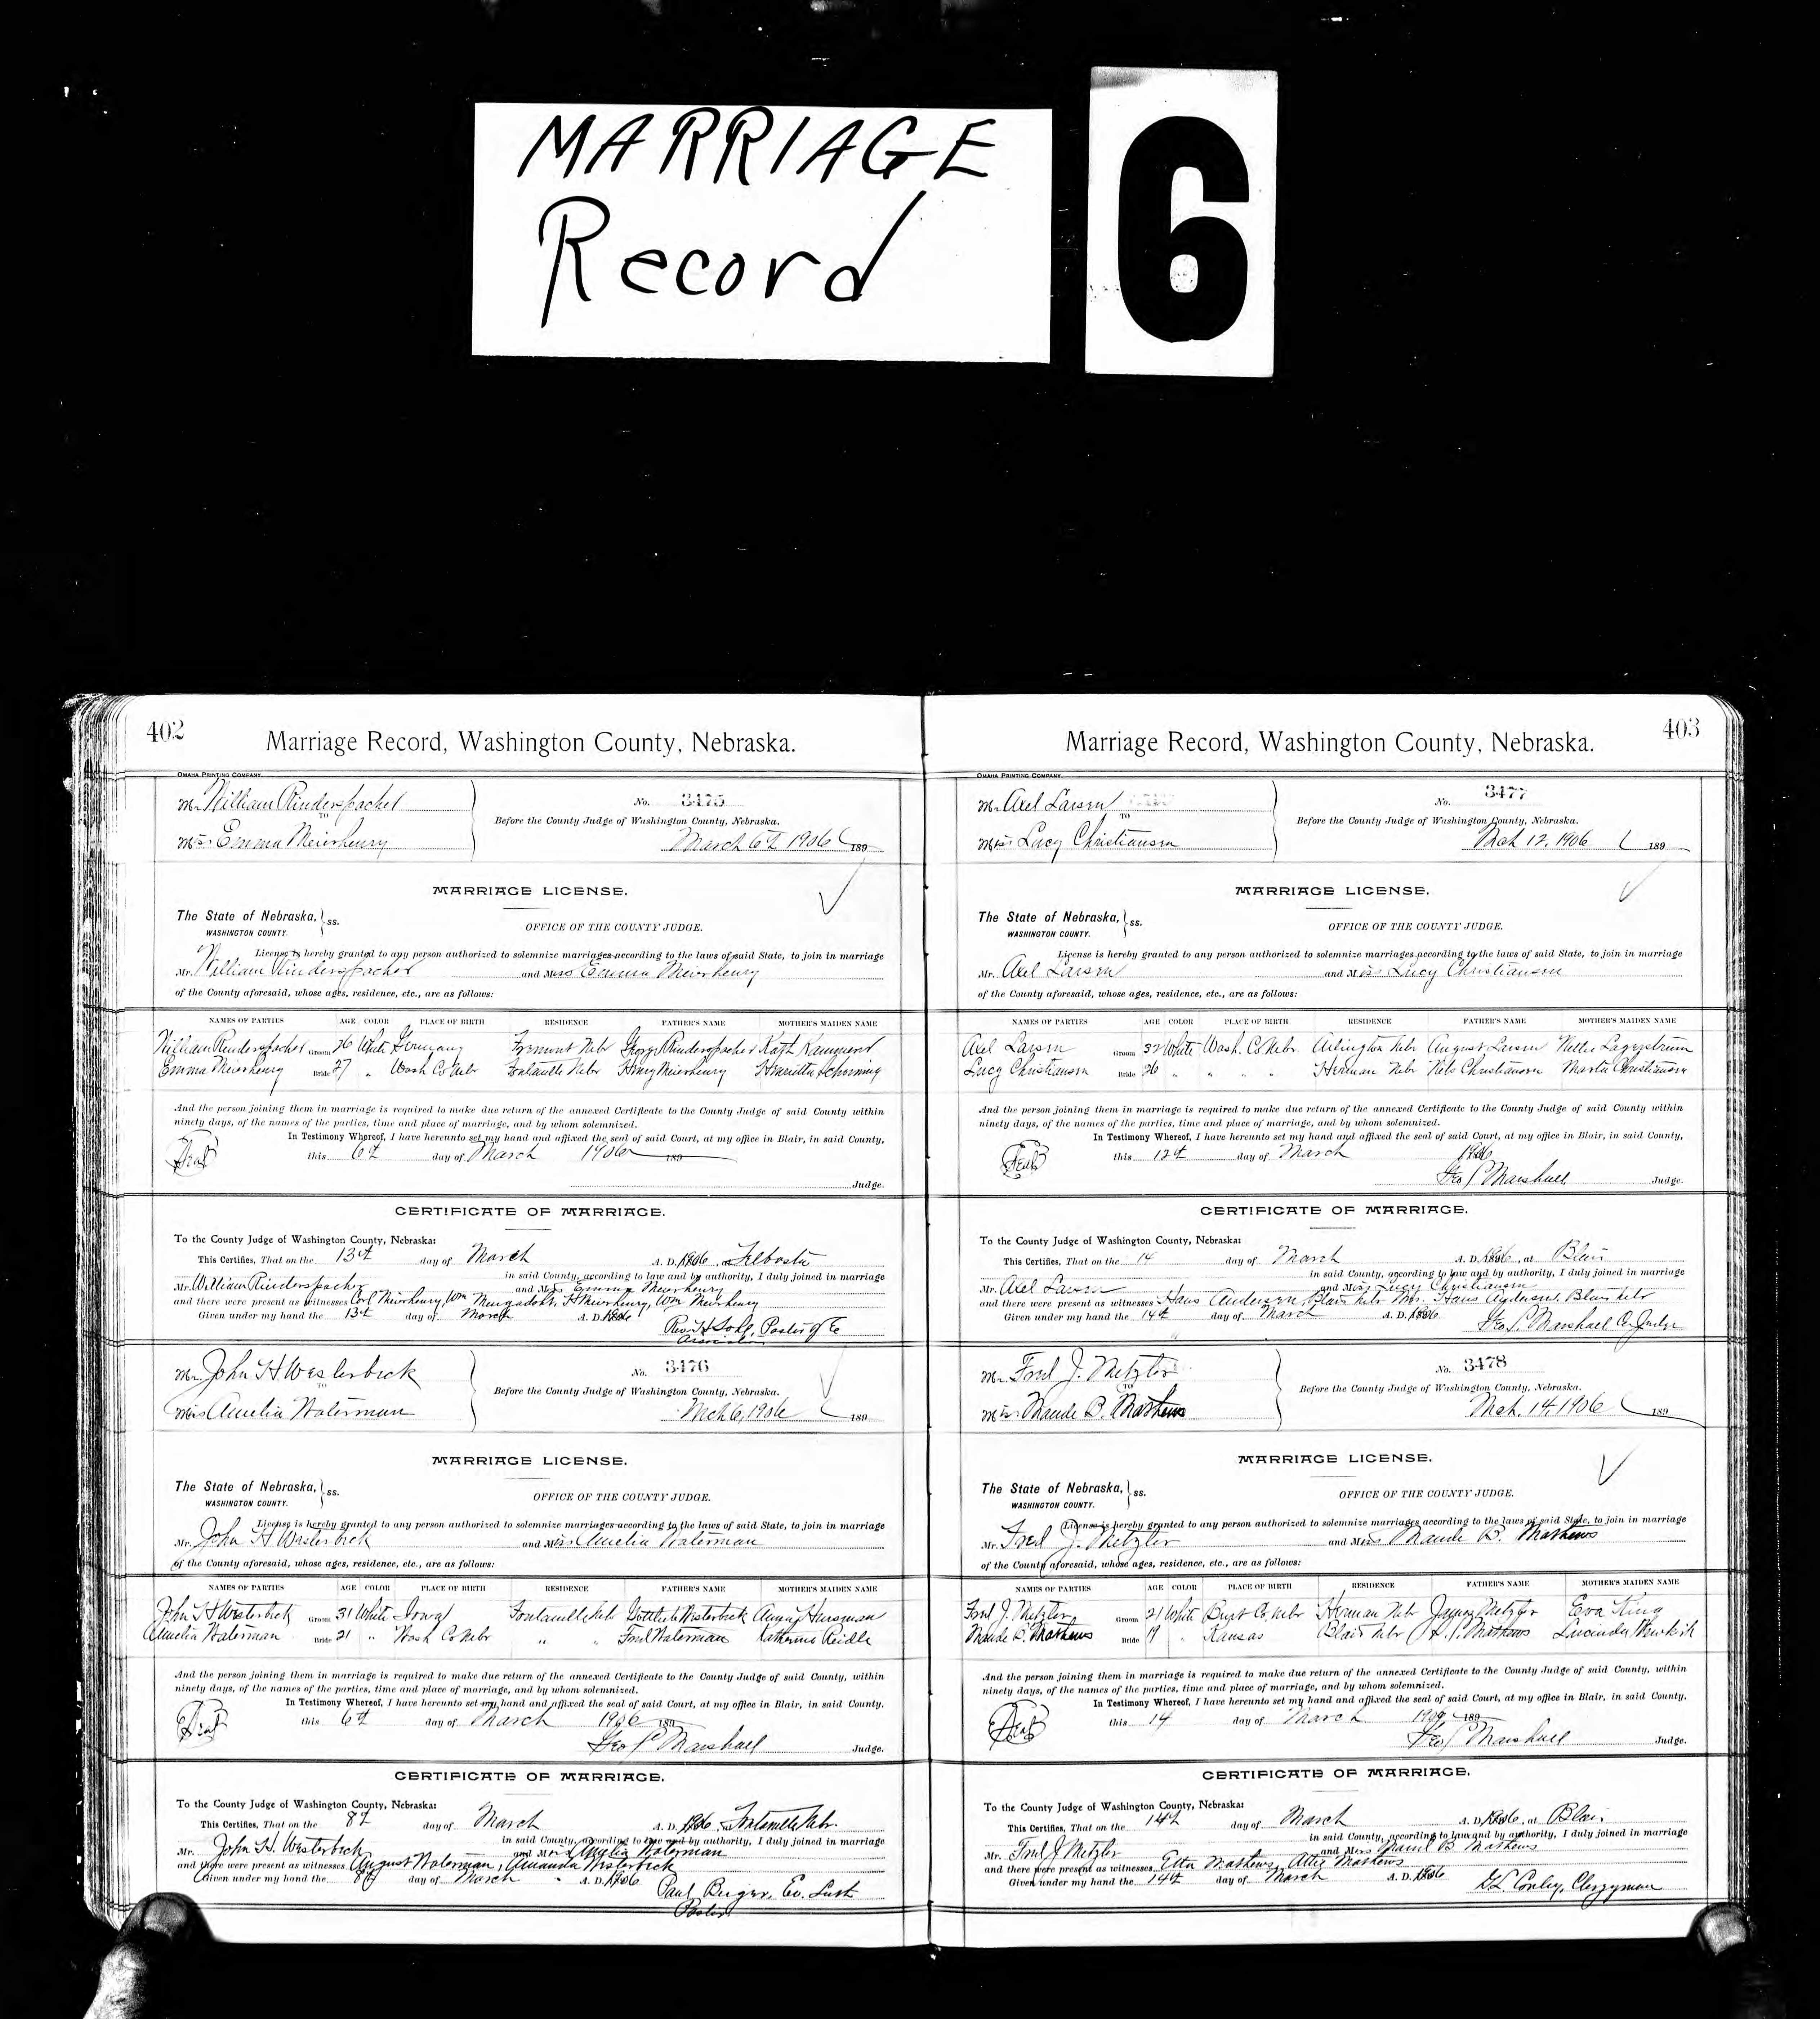 MARRIAGE
Record
6
402
Marriage Record, Washington County, Nebraska.
OMAHA PRINTING COMPANY.
Mr William Rinderspacher
TO
Miss Emma Meierhenry
No. 3475
Before the County Judge of Washington County, Nebraska.
March 6th 1906 189
MARRIAGE LICENSE.
The State of Nebraska, } ss.
WASHINGTON COUNTY.
OFFICE OF THE COUNTY JUDGE.
License is hereby granted to any person authorized to solemnize marriages according to the laws of said State, to join in marriage
Mr. William Rinderspacher and Miss Emma Meierhenry
of the County aforesaid, whose ages, residence, etc., are as follows:
NAMES OF PARTIES AGE COLOR PLACE OF BIRTH RESIDENCE FATHER'S NAME MOTHER'S MAIDEN NAME
William Rinderspacher Groom 26 White Germany Fremont Nebr George Rinderspacher Kath
Emma Meierhenry Bride 27 " Wash Co Nebr Fontanelle Nebr Henry Meierhenry Henrietta
And the person joining them in marriage is required to make due return of the annexed Certificate to the County Judge of said County within
ninety days, of the names of the parties, time and place of marriage, and by whom solemnized.
In Testimony Whereof, I have hereunto set my hand and affixed the seal of said Court, at my office in Blair, in said County,
Seal this 6th day of March 1906 189
Judge.
CERTIFICATE OF MARRIAGE.
To the County Judge of Washington County, Nebraska:
This Certifies, That on the 13th day of March A. D. 1906, at
in said County, according to law and by authority, I duly joined in marriage
Mr. William Rinderspacher and Miss Emma Meierhenry
and there were present as witnesses Carl Meierhenry, Wm H Meierhenry, Wm Meierhenry
Given under my hand the 13th day of March A. D. 1906
Rev. H Pastor of Ev
Association
Mr John H Westerbeck
TO
Miss Amelia Waterman
No. 3476
Before the County Judge of Washington County, Nebraska.
Mch 6, 1906 189
MARRIAGE LICENSE.
The State of Nebraska, } ss.
WASHINGTON COUNTY.
OFFICE OF THE COUNTY JUDGE.
License is hereby granted to any person authorized to solemnize marriages according to the laws of said State, to join in marriage
Mr. John H Westerbeck and Miss Amelia Waterman
of the County aforesaid, whose ages, residence, etc., are as follows:
NAMES OF PARTIES AGE COLOR PLACE OF BIRTH RESIDENCE FATHER'S NAME MOTHER'S MAIDEN NAME
John H Westerbeck Groom 31 White Iowa Fontanelle Nebr Gottlieb Westerbeck Anna Hursman
Amelia Waterman Bride 21 " Wash Co Nebr " " Fred Waterman Katherine Reidle
And the person joining them in marriage is required to make due return of the annexed Certificate to the County Judge of said County, within
ninety days, of the names of the parties, time and place of marriage, and by whom solemnized.
In Testimony Whereof, I have hereunto set my hand and affixed the seal of said Court, at my office in Blair, in said County.
Seal this 6th day of March 1906 189
Geo C Marshall Judge.
CERTIFICATE OF MARRIAGE.
To the County Judge of Washington County, Nebraska:
This Certifies, That on the 8th day of March A. D. 1906, Fontanelle Nebr.
in said County, according to law and by authority, I duly joined in marriage
Mr. John H. Westerbeck and Miss Amelia Waterman
and there were present as witnesses August Waterman, Amanda Westerbeck
Given under my hand the 8th day of March A. D. 1906
Paul Burger, Ev. Luth
Pastor
403
Marriage Record, Washington County, Nebraska.
OMAHA PRINTING COMPANY.
Mr Axel Larson
TO
Miss Lucy Christianson
No. 3477
Before the County Judge of Washington County, Nebraska.
Mch 12, 1906 189
MARRIAGE LICENSE.
The State of Nebraska, } ss.
WASHINGTON COUNTY.
OFFICE OF THE COUNTY JUDGE.
License is hereby granted to any person authorized to solemnize marriages according to the laws of said State, to join in marriage
Mr. Axel Larson and Miss Lucy Christianson
of the County aforesaid, whose ages, residence, etc., are as follows:
NAMES OF PARTIES AGE COLOR PLACE OF BIRTH RESIDENCE FATHER'S NAME MOTHER'S MAIDEN NAME
Axel Larson Groom 32 White Wash. Co. Nebr. Arlington Nebr August Larson Nellie Lagerstrum
Lucy Christianson Bride 26 " " " " Herman Nebr Nels Christianson Marta Christianson
And the person joining them in marriage is required to make due return of the annexed Certificate to the County Judge of said County within
ninety days, of the names of the parties, time and place of marriage, and by whom solemnized.
In Testimony Whereof, I have hereunto set my hand and affixed the seal of said Court, at my office in Blair, in said County,
Seal this 12th day of March 1906
Geo C Marshall Judge.
CERTIFICATE OF MARRIAGE.
To the County Judge of Washington County, Nebraska:
This Certifies, That on the 14 day of March A. D. 1906, at Blair
in said County, according to law and by authority, I duly joined in marriage
Mr. Axel Larson and Miss Lucy Christianson
and there were present as witnesses Hans Anderson, Blair Nebr Mrs. Hans Anderson, Blair Nebr
Given under my hand the 14th day of March A. D. 1906
Geo. C. Marshall Co. Judge
Mr Fred J. Metzler
TO
Miss Maude B. Mathews
No. 3478
Before the County Judge of Washington County, Nebraska.
Mch. 14, 1906 189
MARRIAGE LICENSE.
The State of Nebraska, } ss.
WASHINGTON COUNTY.
OFFICE OF THE COUNTY JUDGE.
License is hereby granted to any person authorized to solemnize marriages according to the laws of said State, to join in marriage
Mr. Fred J. Metzler and Miss Maude B. Mathews
of the County aforesaid, whose ages, residence, etc., are as follows:
NAMES OF PARTIES AGE COLOR PLACE OF BIRTH RESIDENCE FATHER'S NAME MOTHER'S MAIDEN NAME
Fred J. Metzler Groom 21 White Burt Co, Nebr Herman Nebr James Metzler Eva King
Maude B. Mathews Bride 19 " Kansas Blair Nebr Mathews Lucinda Newkirk
And the person joining them in marriage is required to make due return of the annexed Certificate to the County Judge of said County, within
ninety days, of the names of the parties, time and place of marriage, and by whom solemnized.
In Testimony Whereof, I have hereunto set my hand and affixed the seal of said Court, at my office in Blair, in said County.
Seal this 14 day of March 1906 189
Geo C Marshall Judge.
CERTIFICATE OF MARRIAGE.
To the County Judge of Washington County, Nebraska:
This Certifies, That on the 14th day of March A. D. 1906, at Blair
in said County, according to law and by authority, I duly joined in marriage
Mr. Fred J Metzler and Miss Maud B Mathews
and there were present as witnesses Etta Mathews, Attie Mathews
Given under my hand the 14th day of March A. D. 1906
G.L. Conley, Clergyman